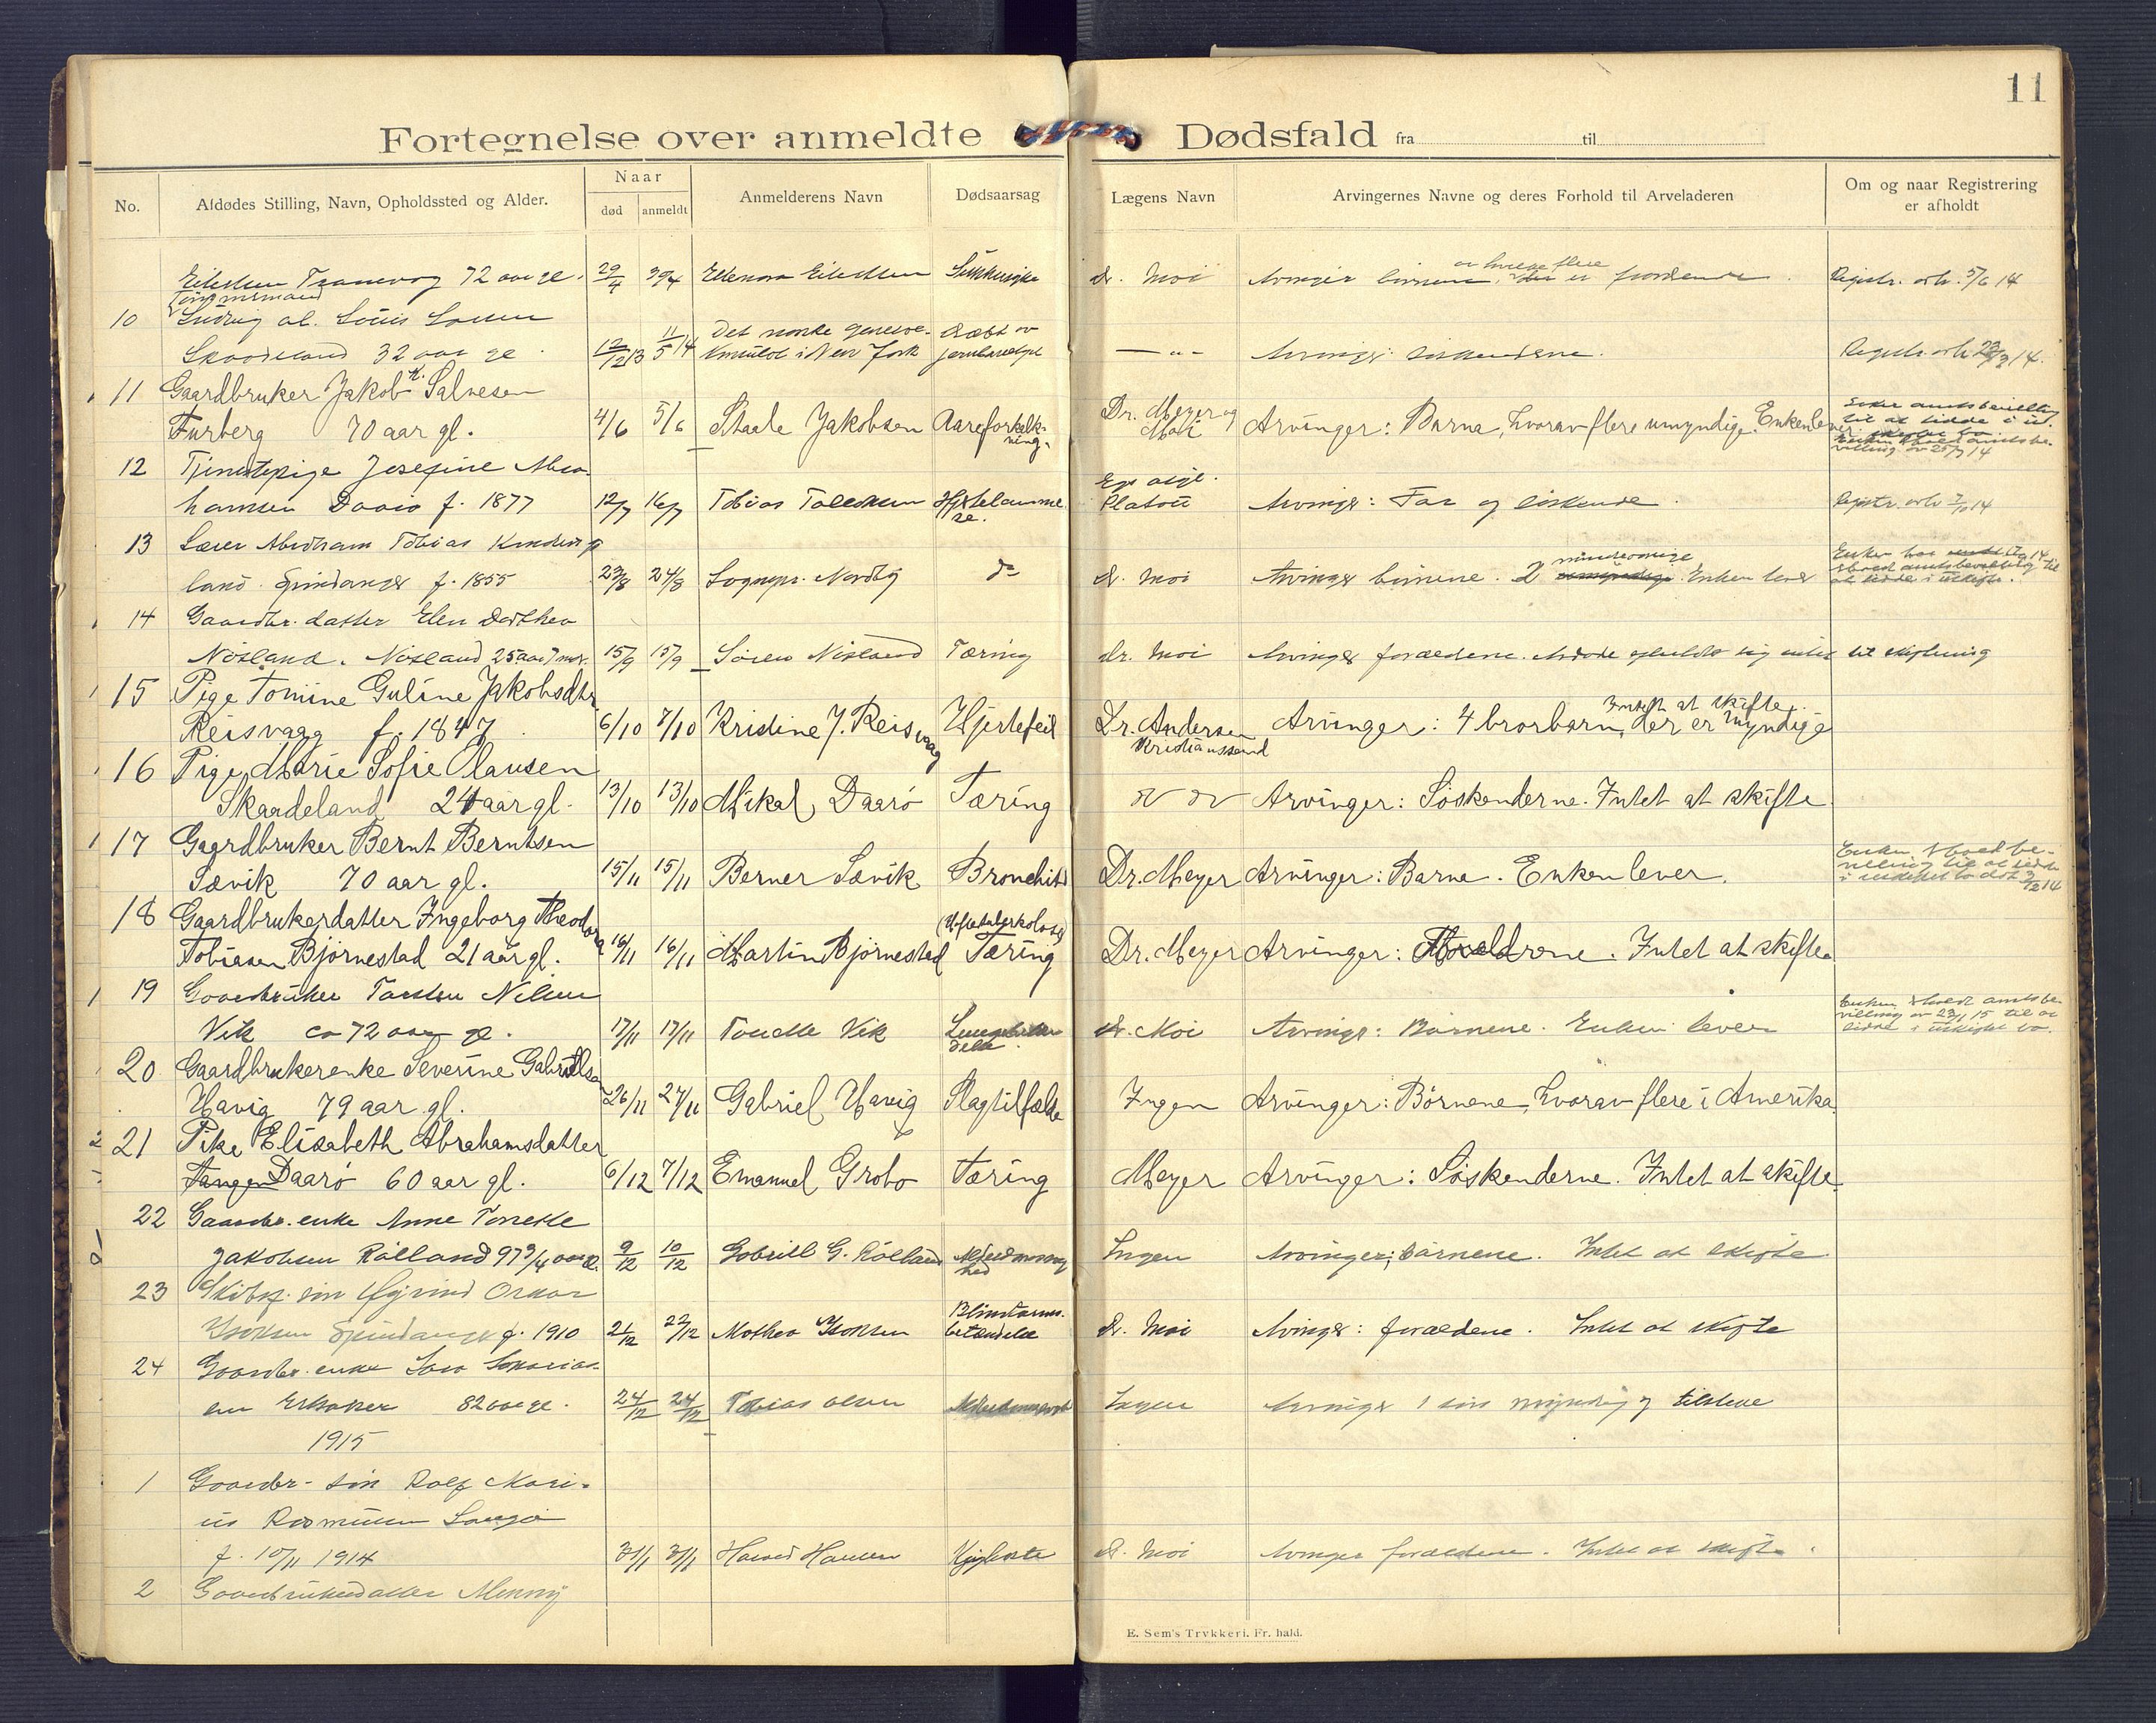 11
Fortegnelse over anmeldte Dødsfald fra til
No. Afdødes Stilling, Navn, Opholdssted og Alder. Naar død anmeldt Anmelderens Navn Dødsaarsag Lægens Navn Arvingernes Navne og deres Forhold til Arveladeren Om og naar Registrering er afholdt
Eilertsen Tranevog 72 aar gl. 29/4 30/4 Ellenora Eilertsen Sukkersyke Dr. Moi Arvinger børnene, av hvilke flere er fraværende. Registr. avh. 5/6 14
10 Tømmermand Ludvig al. Louis Larsen
Skaadeland 32 aar gl. 12/12 13 11/5 14 Det norske generalkonsulat i New York Dræbt av jernbane — " - Arvinger: søskendene. Registr. avh 23/3 14.
11 Gaardbruker Jakob K. Salvesen
Furberg 70 aar gl. 4/6 5/6 Staale Jakobsen Aareforkalkning. Dr. Meyer og Moi Arvinger: Barna, hvorav flere umyndige. Enken lever.
12 Tjenestepige Josefine Abrahamsen
Daarø f. 1877 12/7 16/7 Tobias Tallaksen Hjertelammelse. Platou Arvinger: Far og søskende. Registr. avh 7/10 14
13 Lærer Abraham Tobias
land. Spindanger f. 1855 23/8 24/8 Sognepr. Nordby do Dr. Moi Arvinger børnene. 2 mindreaarige umyndige. Enken lever
14 Gaardbr. datter Elen Dorthea
Nøsland. Nøsland 25 aar 7 mdr. 15/9 15/9 Søren Nøsland Tæring Dr. Moi Arvinger forældrene. Avdøde efterlot sig intet til skiftning
15 Pige Tomine Guline Jakobsdtr.
Reisvaag f. 1847. 6/10 7/10 Kristine J. Reisvaag Hjertefeil Dr. Andersen Kristianssand Arvinger: 4 brorbarn, der er myndige Intet at skifte.
16 Pige Marie Sofie Olausen
Skaadeland 24 aar gl. 13/10 13/10 Mikal Daarø Tæring Arvinger: Søskenderne. Intet at skifte
17 Gaardbruker Bernt Berntsen
Sævik 70 aar gl. 15/11 15/11 Berner Sævik Bronchit Dr. Meyer Arvinger: Barna. Enken lever.
18 Gaardbrukerdatter Ingeborg Theodora
Tobiasen Bjørnestad 21 aar gl. 16/11 16/11 Martin Bjørnestad (Hoftetuberkolose) Tæring Dr. Meyer Arvinger: Forældrene. Intet at skifte.
19 Gaardbruker Torsten Nilsen
Vik ca 72 aar gl. 17/11 17/11 Tomelle Vik Dr. Moi Arvinger: Børnene. Enken lever
20 Gaardbrukerenke Severine Gabrielsen
Havig 79 aar gl. 26/11 27/11 Gabriel Havig Slagtilfælde Ingen Arvinger: Børnene, hvorav flere i Amerika
21 Pike Elisabeth Abrahamsdatter
Tangen Daarø 60 aar gl. 6/12 7/12 Emanuel Grobo Tæring Meyer Arvinger: Søskenderne. Intet at skifte.
22 Gaardbr. enke Anne Torelle
Jakobsen Rølland 97 3/4 aar gl. 9/12 10/12 Gabriell G. Rølland Ingen Arvinger; børnene. Intet at skifte
23 Skibsf. søn Øyvind Oskar
Isaksen Spindanger f. 1910 21/12 22/12 Mathea Isaksen Blindtarmsbetændelse Dr. Moi Arvinger: forældrene. Intet at skifte
24 Gaardbr. enke
82 aar gl. 24/12 24/12 Tobias Olsen Ingen Arvinger 1 søn myndig og tilstede
1915
1 Gaardbr- søn Rolf Mari-
us Rasmussen Langø
f. 10/11 1914 31/1 31/1 Harald Hansen Kighoste Dr. Moi Arvinger forældrene. Intet at skifte.
2 Gaardbrukerdatter Menny
E. Sem's Trykkeri. Fr. hald.